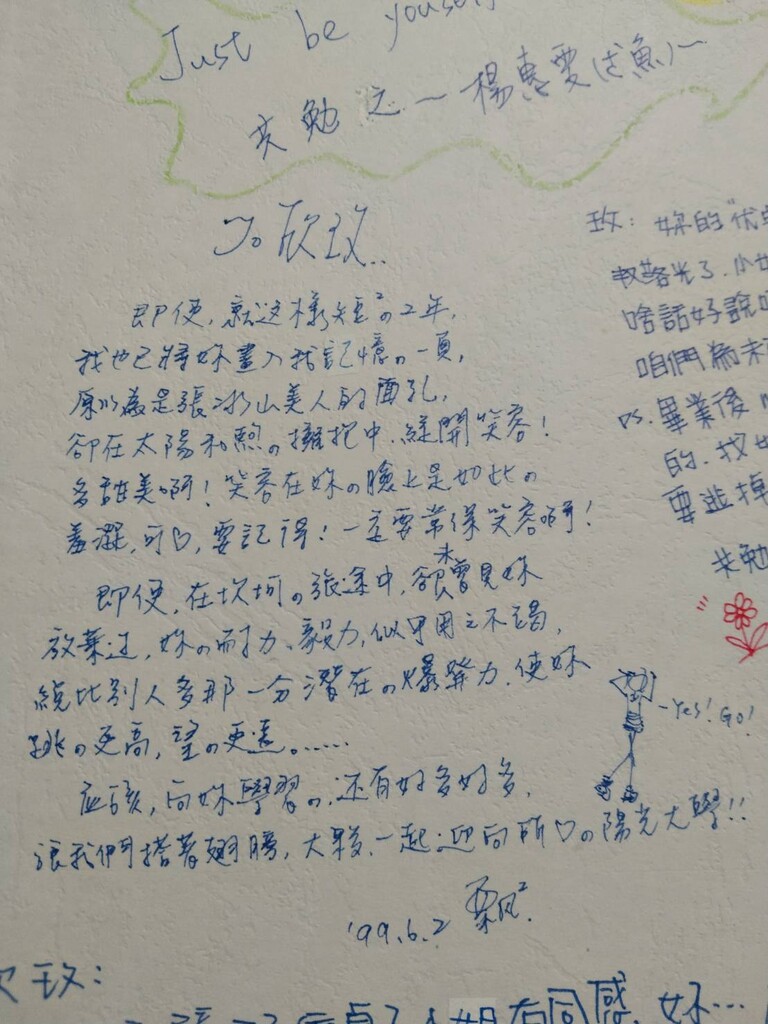 Just be youself
共勉之~楊惠雯(鱼)~
To 欣玫..
即便,就這樣短²の2年,
我也已將妳畫入我記憶の一頁,
原以為是張冰山美人的面孔,
卻在太陽和煦の擁抱中,綻開笑容!
多甜美啊!笑容在妳の臉上是如此の
羞澀,可♡,要記得!一定要常保笑容啊!
即便,在坎坷の旅途中,卻未曾見妳
放棄过,妳の耐力、毅力,似乎用之不竭,
總比別人多那一分潛在の爆發力,使妳
跳の更高,望の更遠。.....
應該,向妳學習の,还有好多好多,
讓我們搭著翅膀,大夥一起迎向所♡の陽光大學!!
'99.6.2 飄²
-Yes! Go!
玫:妳的"优
光了.小女
啥話好說
咱們為未
PS.畢業後
的.找
要逃掉
共勉
玫:
有同感,妳...